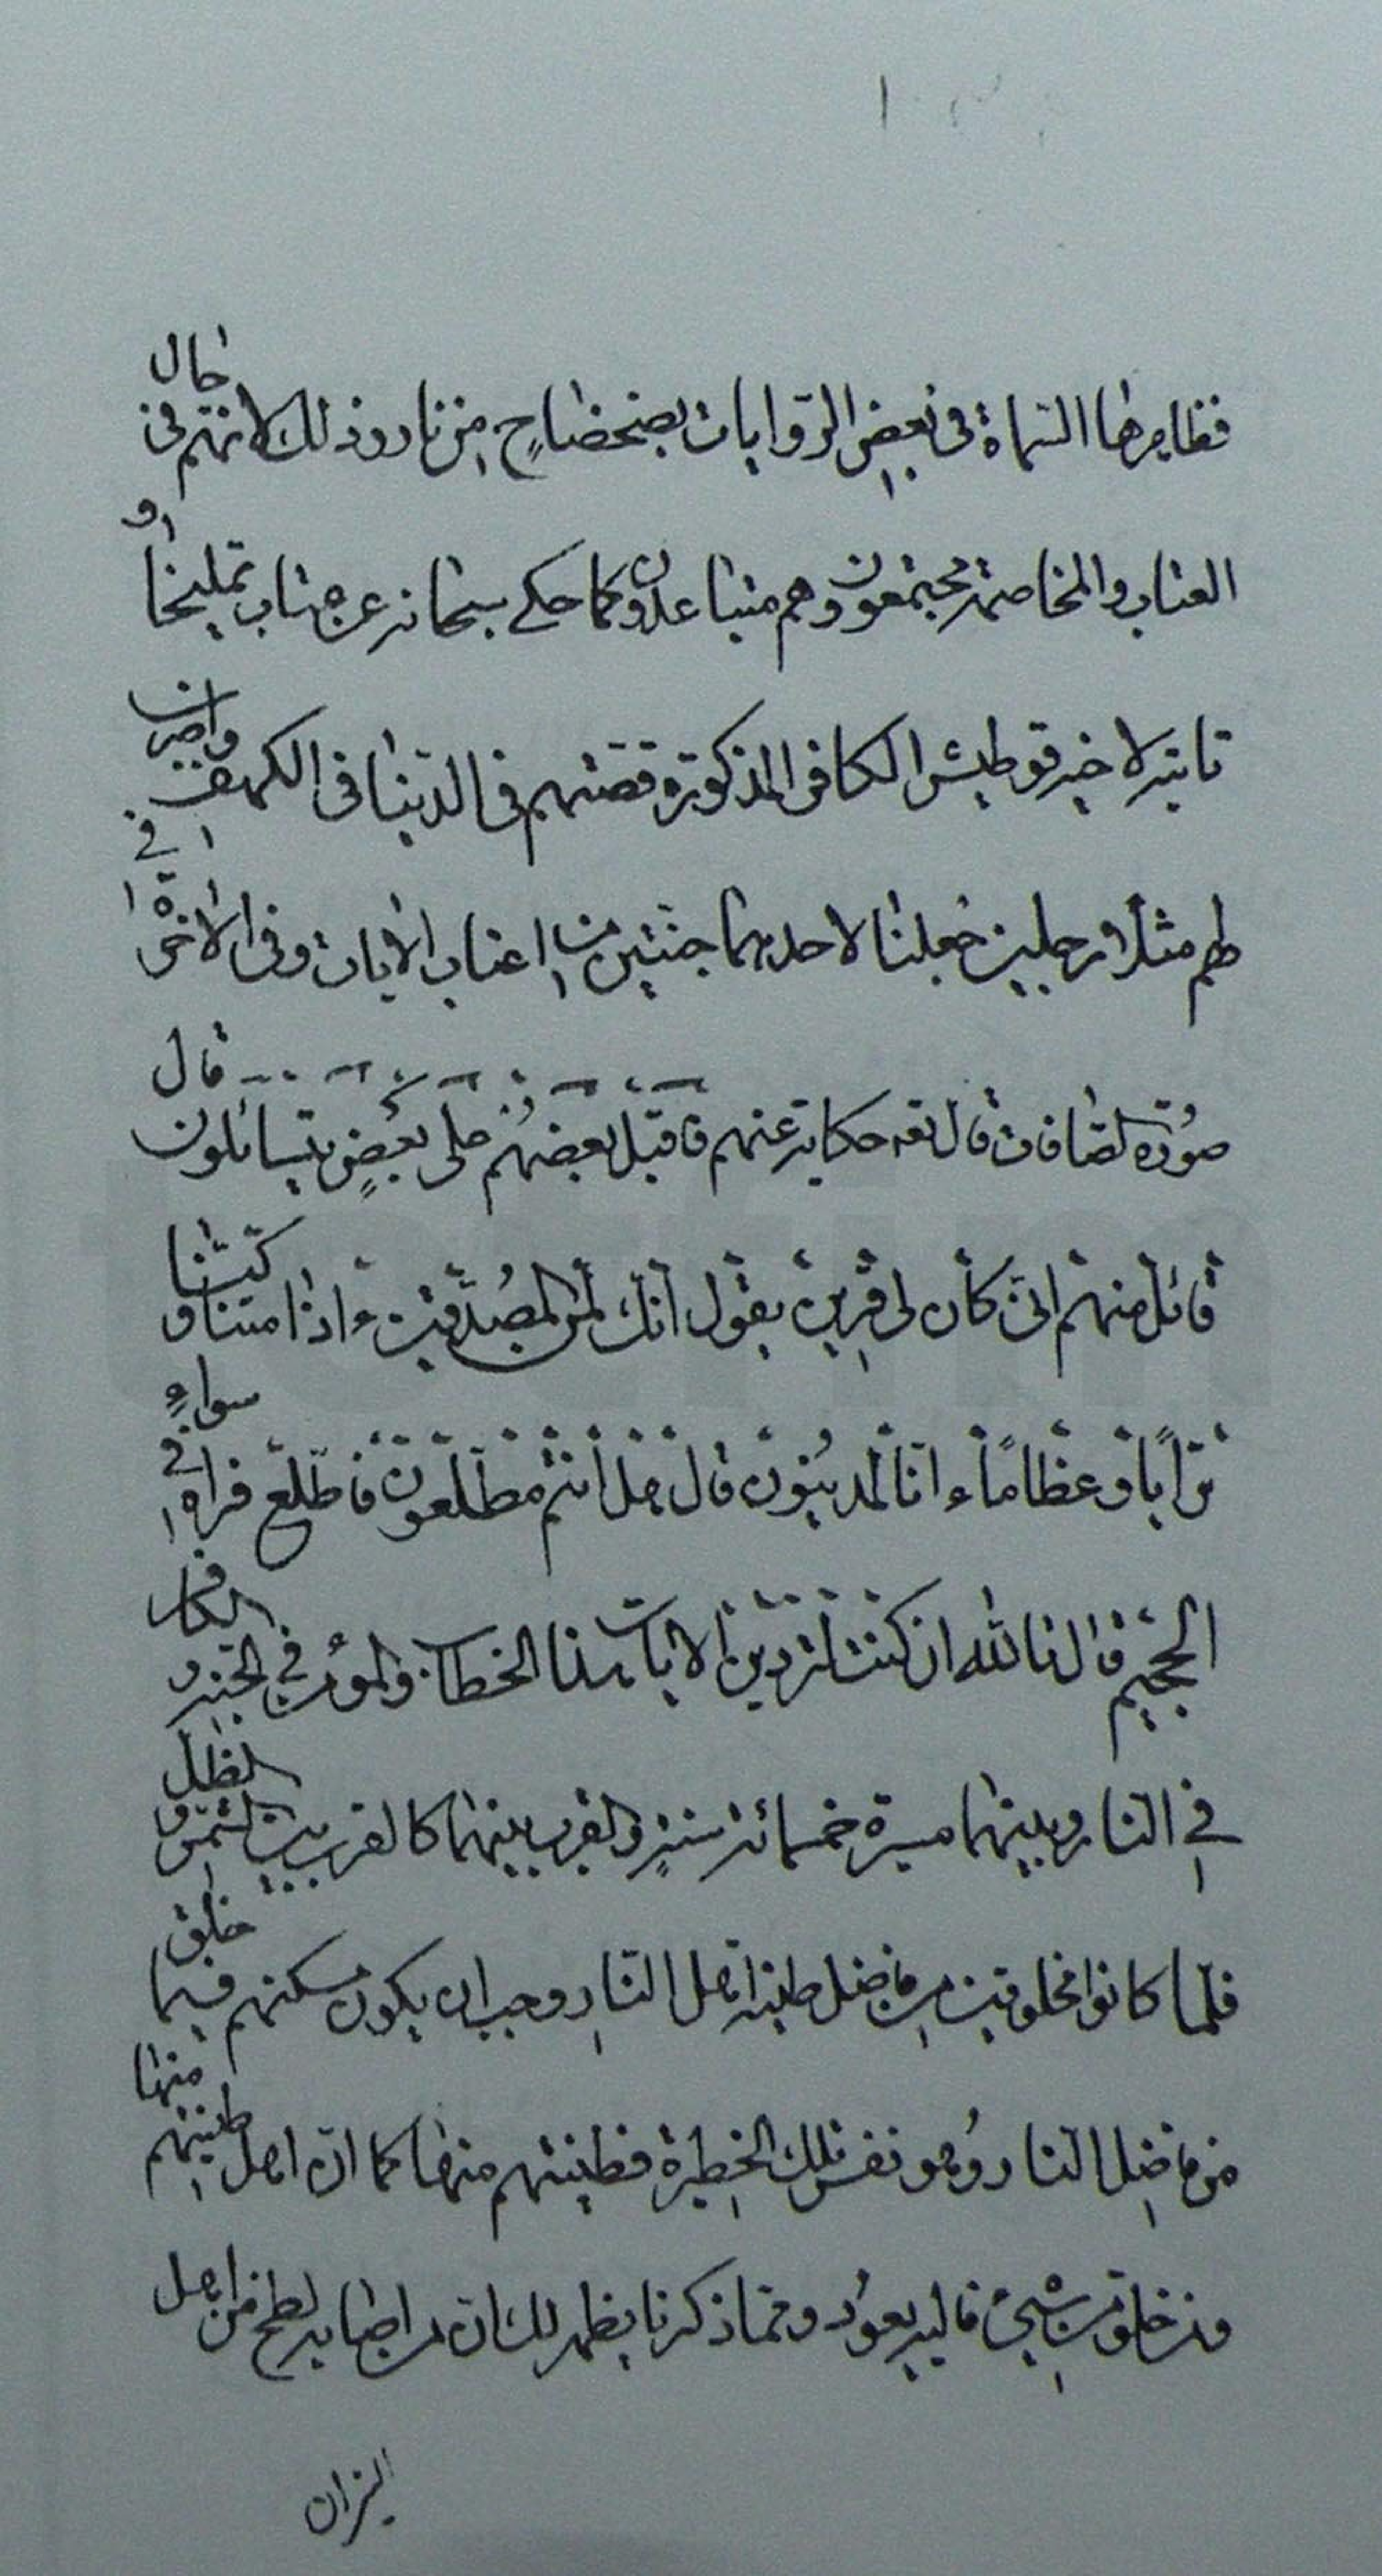 فظايرها المسماة فى بعض الروايات بضحضاح من نار وذلك لانهم فى حال
العتاب والمخاصمة مجتمعون وهم متباعدون كما حكى سبحانه عن عتاب تمليخا او
تانيه لاخيه قوطيش الكافر المذكورة قصتهم فى الدنيا فى الكهف واضرب
لهم مثلا رجلين جعلنا لاحدهما جنتين من اعناب الايات وفى الاخرة فى
سورة الصافات قال تعه حكاية عنهم فاقبل بعضهم على بعض يتسائلون قال
قائل منهم انى كان لى قرين يقول ائنك لمن المصدقين ءاذا متنا و كنا
ترابا وعظاما ءانا لمدينون قال هل انتم مطلعون فاطلع فراه فى سواء
الجحيم قال تالله ان كنت لتردين الايات هذا الخطاب والمؤمن فى الجنة و الكافر
فى النار وبينهما مسيرة خمسمائة سنة والقرب بينهما كالقرب بين الشمس و الظل
فلما كانوا مخلوقين من فاضل طينة اهل النار وجب ان يكون مسكنهم فيما خلق
من فاضل النار وهو نفس تلك الحظيرة فطينتهم منها كما ان اهل طينتهم منها
ومن خلق من شىء فاليه يعود ومما ذكرنا يظهر لك ان من اهل
النيران